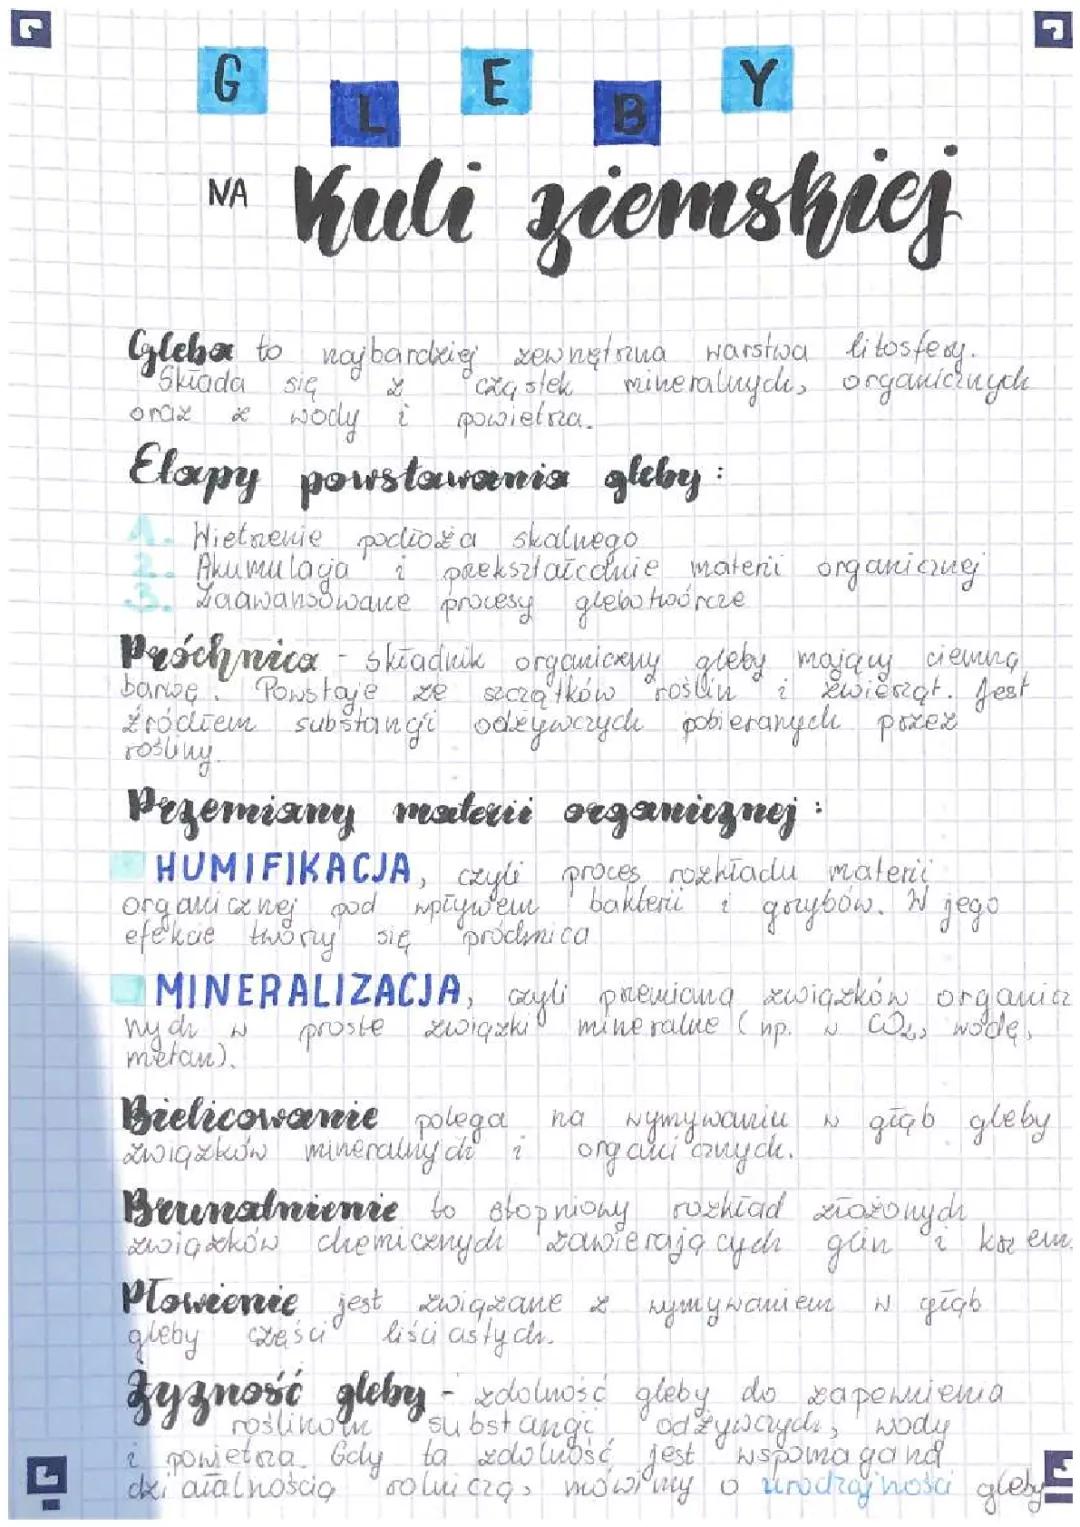 GLEBY
NA Kuli ziemskiej
Gleba to najbardziej zewnętrzna warstwa litosfery.
Składa się z cząstek mineralnych, organicznych
oraz z wody i powietrza.
Etapy powstawania gleby:
1. Wietrzenie podłoża skalnego
2. Akumulacja i przekształcanie materii organicznej
3. Zaawansowane procesy glebotwórcze
Próchnica - składnik organiczny gleby mający ciemną
barwę. Powstaje ze szczątków roślin i zwierząt. Jest
źródłem substancji odżywczych pobieranych przez
rośliny.
Przemiany materii organicznej:
HUMIFIKACJA, czyli proces rozkładu materii
organicznej pod wpływem bakterii i grzybów. W jego
efekcie tworzy się próchnica
MINERALIZACJA, czyli przemianą związków organicz
nych w proste związki mineralne (np. w CO2, wodę,
metan).
Bielicowanie polega na wymywaniu w głąb gleby
związków mineralnych i organicznych.
Brunatnienie to stopniowy rozkład złożonych
związków chemicznych zawierających glin i krzem.
Płowienie jest związane z wymywaniem w głąb
gleby części liściastych.
Żyzność gleby - zdolność gleby do zapewnienia
roślinom substancji odżywczych, wody
i powietrza. Gdy ta zdolność jest wspomagana
działalnością rolniczą, mówimy o urodzajności gleby